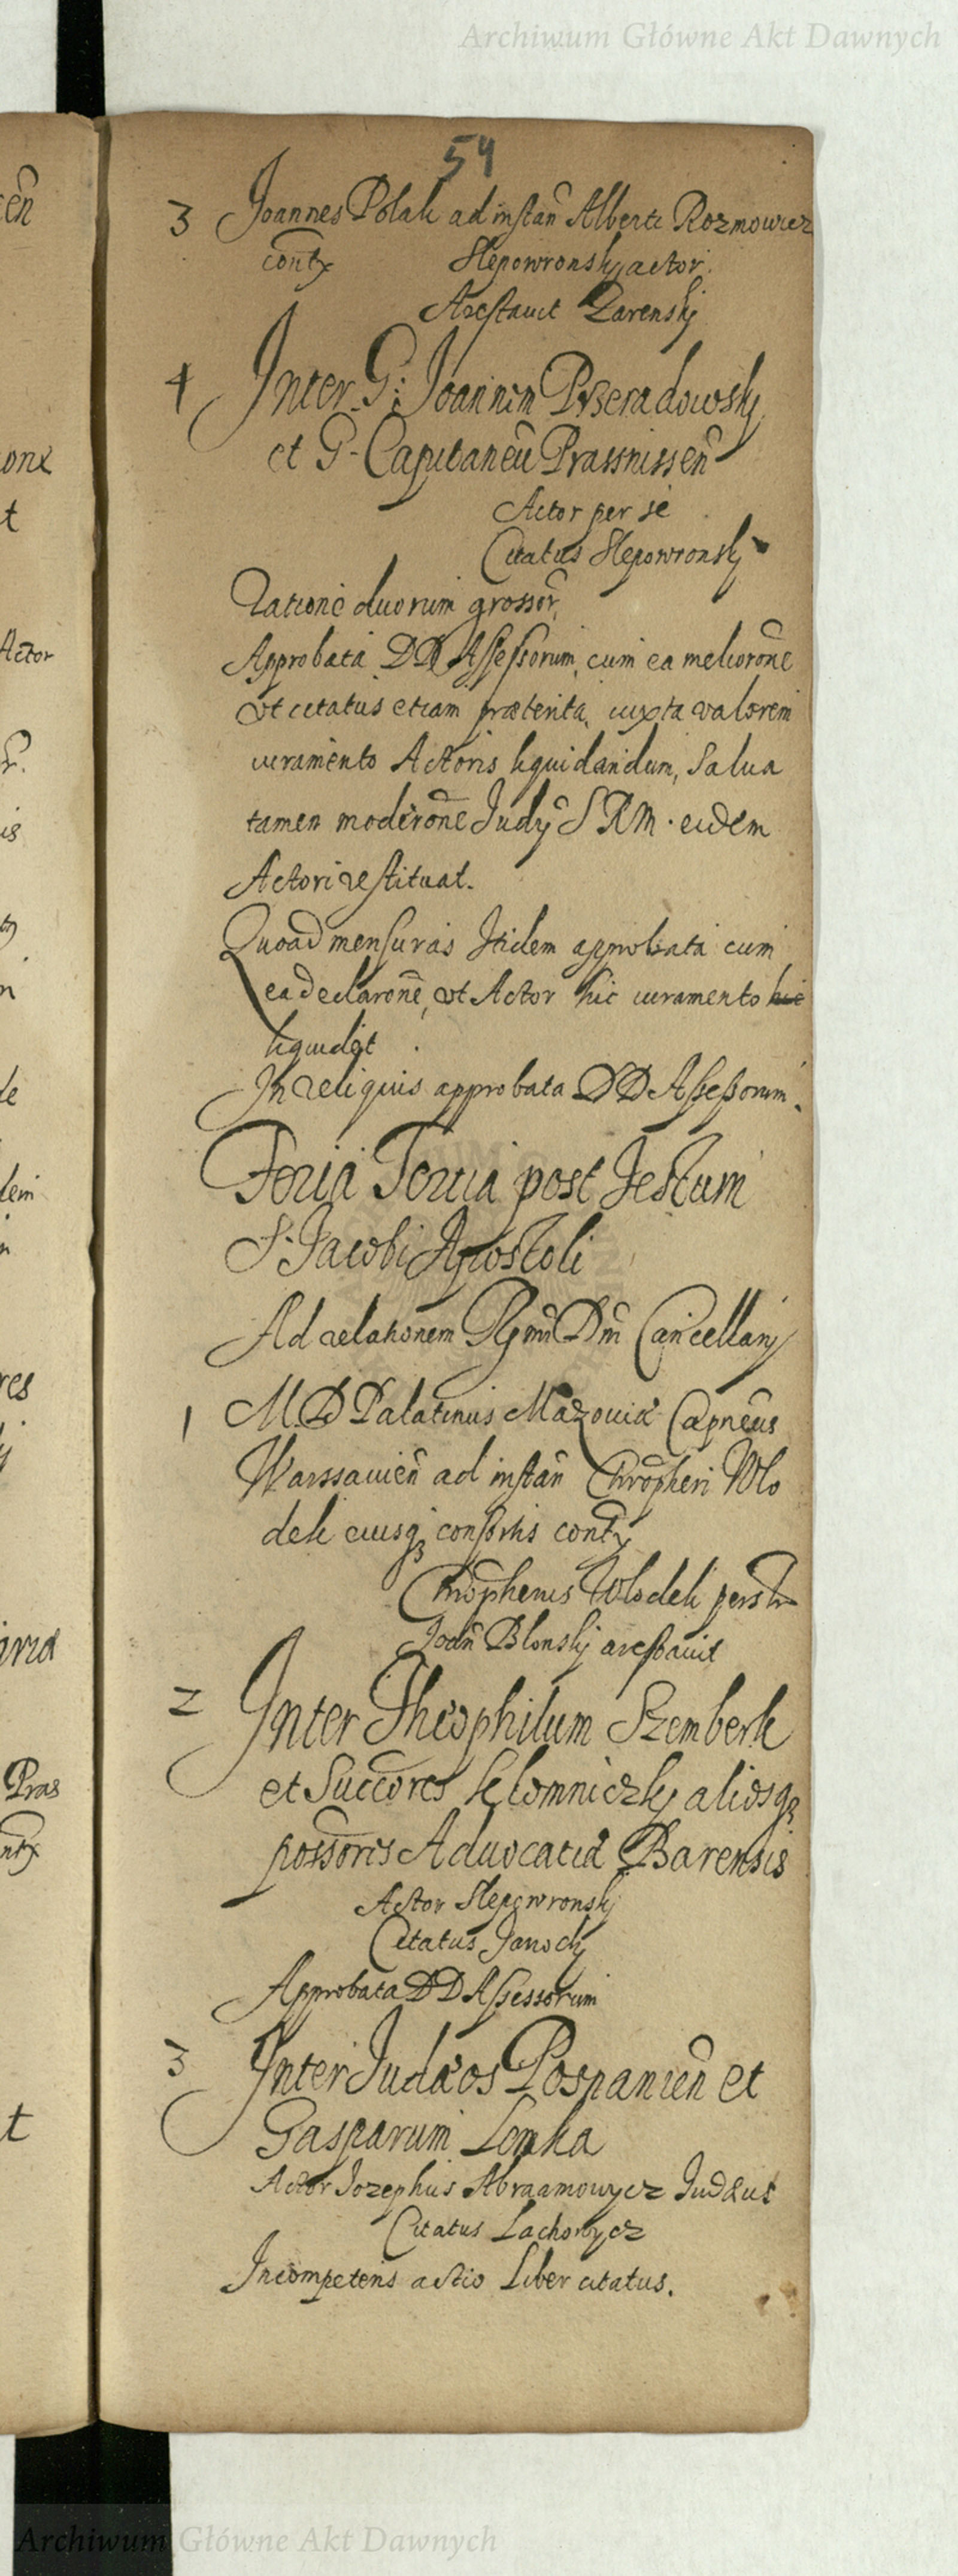 Archiwum Główne Akt Dawnych
54
3 Joannes Polak ad instan̄ Alberti Rozmowicz
contx Slepowronskÿ actor.
Arestavit Zarenskj
4 Inter G: Joannem Przeradowskÿ
et G. Capitaneū Prassnissen̄
Actor per se
Citatus Slepowronskÿ
Ratione duorum grossor̄
Approbata DD Assessorum, cum ea meliorōne
vt citatus etiam præterita iuxta valorem
iuramento Actoris liquidandum, Salua
tamen moderōne Judÿ SRM. eidem
Actori restituat.
Quoad mensuras Itidem approbata cum
ea declarōne, vt Actor hic iuramento hic
liquidet
In reliquis approbata DD Assessorum.
Feria Tertia post Festum
S. Jacobi Apostoli
Ad relationem Dnī Cancellarÿ
1 M.D Palatinus Mazouiæ Capnēus
Warssauien̄ ad instan̄ Chrōpheri Wlo
dek eiusqꝫ consortis contx
Chrōpherus Wlodek
Joān Blonskj arestauit
2 Inter Theophilum Szemberk
et Succōres Sklomniczkÿ aliosqꝫ
possōris Aduocatiæ Barensis
Actor Slepowronskÿ
Citatus Janockÿ
Approbata DD Assessorum
3 Inter Judæos Posnanien̄ et
Gasparum Lemka
Actor Jozephus Abraamowycz Judæus
Citatus Lachowycz
Incompetens actio Liber citatus.
en̄
onx
t
Actor
is
de
dem
res
Pras
ntx
t
Archiwum Główne Akt Dawnych